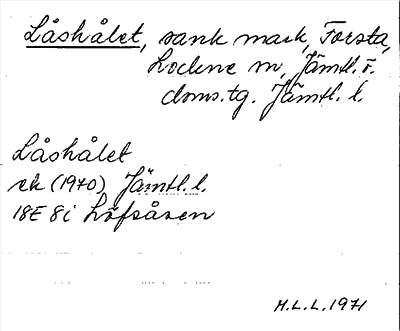 Låshålet, sank mark, Forsta,
Lockne sn, Jämtl. ö.
doms.tg. Jämtl. l.
Låshålet
ek (1970) Jämtl. l.
18E 8i Löfsåsen
H.L.L. 1971